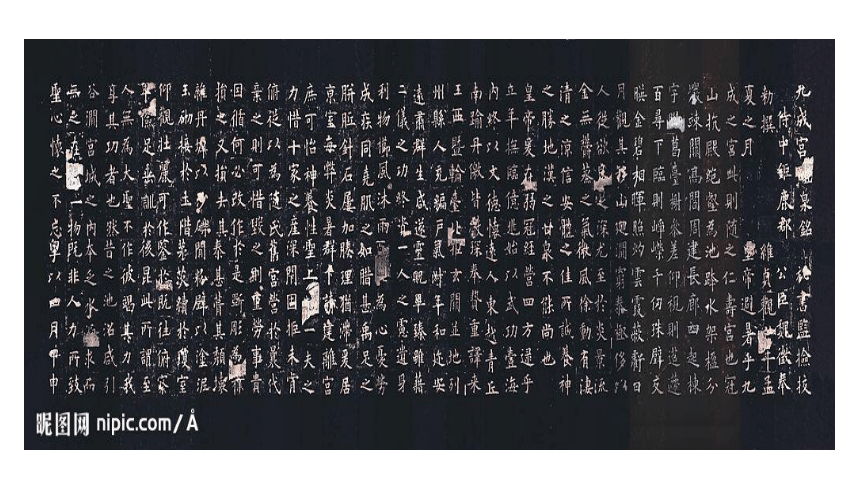 九成宮泉銘 祕書監檢校
侍中鉅鹿郡公臣魏徵奉
勅撰 維貞觀年孟
夏之月 皇帝避暑乎九
成之宮此則隨之仁壽宮也冠
山抗殿絕壑為池跨水架楹分
巖竦闕高閣周建長廊四起棟
宇葛臺榭參差仰視則迢遰
百尋下臨則崢嶸千仞珠璧交
暎金碧相暉照灼雲霞蔽虧日
月觀其移山迴澗窮泰極侈以
人從欲良足深尤至於炎景流
金無鬱蒸之氣微風徐動有淒
清之涼信安體之佳所誠養神
之勝地漢之甘泉不能尚也
皇帝爰在弱冠經營四方逮乎
立年撫臨億兆始以武功壹海
內終以文德懷遠人東越青丘
南踰丹儌皆獻琛奉贄重譯來
王西暨輪臺北拒玄闕並地列
州縣人充編戶氣淑年和迩安
遠肅群生咸遂靈貺畢臻雖藉
二儀之功終資一人之慮遺身
利物櫛風沐雨百為心憂勞
成疾同堯肌之如腊甚禹足之
胼胝針石屢加腠理猶滯爰居
京室每弊炎暑群下請建離宮
庶可怡神養性聖上一夫之
力惜十家之產深閉固拒未肯
俯從以為隨氏舊宮營於曩代
棄之則可惜毀之則重勞事貴
因循何必改作於是斲彫為樸
損之又損去其泰甚葺其頹壞
雜丹墀以沙礫間粉壁以塗泥
玉砌接於土階茅茨續於瓊室
仰觀壯麗可作鑒於既往俯察
卑儉足垂訓於後昆此所謂至
人無為大聖不作彼竭其力我
享其功者也然昔之池沼咸引
谷澗宮城之內本乏水源求而
無之在一物既非人力所致
聖心懷之不忘粵以四月甲申
昵图网 nipic.com/Å